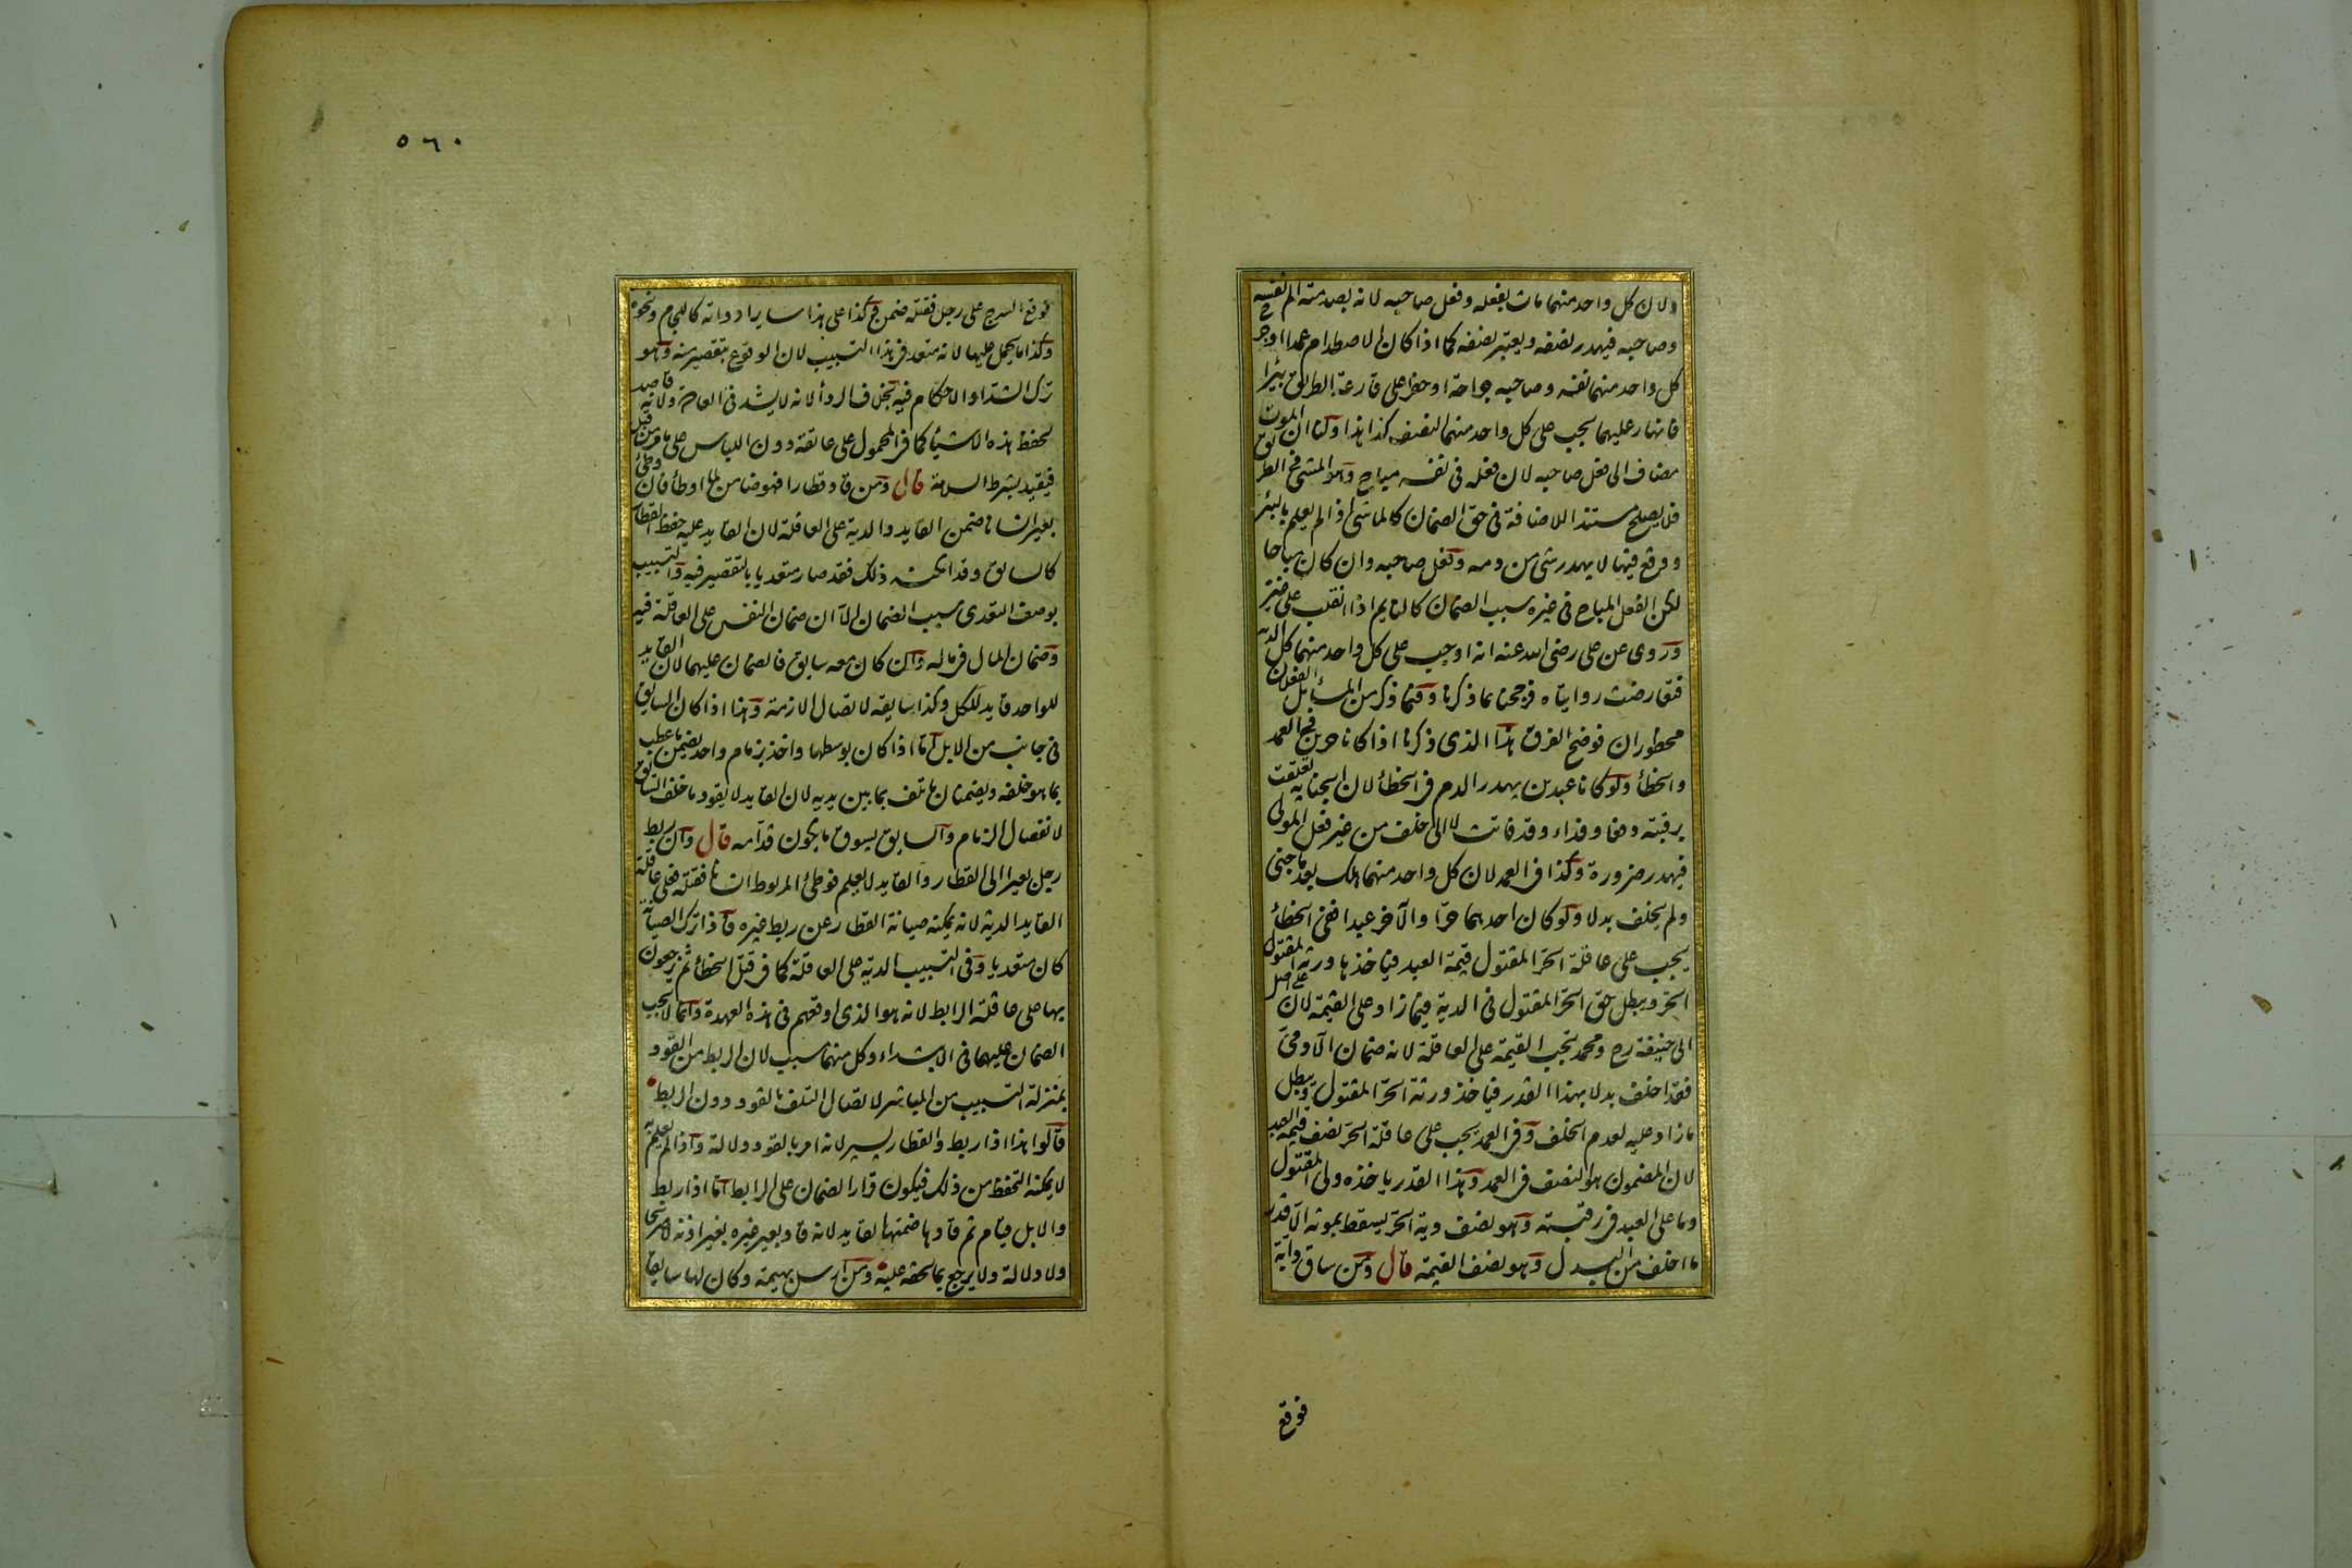 ولان كل واحد منهما مات بفعله وفعل صاحبه لانه بصدمته الم نفسه
وصاحبه فيهدر نصفه ويعتبر نصفه كما اذا كان الاصطدام عمدا او جرح
كل واحد منهما نفسه وصاحبه جراحة او حفرا على قارعة الطريق بئرا
فانهار عليهما يجب على كل واحد منهما النصف كذا هذا ولنا ان الموت
مضاف الى فعل صاحبه لان فعله في نفسه مباح وهو المشي في الطريق
فلا يصلح مستندا للاضافة في حق الضمان كالماشي اذا لم يعلم بالبئر
ووقع فيها لا يهدر شئ من دمه وفعل صاحبه وان كان مباحا
لكن الفعل المباح في غيره سبب الضمان كالنايم اذا انقلب على غيره
وروى عن على رضى الله عنه انه اوجب على كل واحد منهما كل الدية
فتعارضت روايتاه فرجحنا بما ذكرنا وفيما ذكر من المسائل الفعلان
محظوران فوضح الفرق هذا الذى ذكرنا اذا كانا حرين في العمد
والخطأ ولو كانا عبدين يهدر الدم في الخطأ لان الجناية تعلقت
برقبته دفعا وفداء وقد فاتت لا الى خلف من غير فعل المولى
فيهدر ضرورة وكذا في العمد لان كل واحد منهما هلك بعد ما جنى
ولم يخلف بدلا ولو كان احدهما حرا والآخر عبدا ففى الخطأ
يجب على عاقلة الحر المقتول قيمة العبد فياخذها ورثة المقتول
الحر ويبطل حق الحر المقتول في الدية فيما زاد على القيمة لان على اصل
ابى حنيفة رح ومحمد تجب القيمة على العاقلة لانه ضمان الآدمى
فقد اخلف بدلا بهذا القدر فياخذ ورثة الحر المقتول ويبطل
ما زاد عليه لعدم الخلف وفي العمد يجب على عاقلة الحر نصف قيمة العبد
لان المضمون هو النصف في العمد وهذا القدر ياخذه ولى المقتول
وما على العبد في رقبته وهو نصف دية الحر يسقط بموته الا قدر
ما اخلف من البدل وهو نصف القيمة قال ومن ساق دابة
فوقع
٥٦٠
فوقع السرج على رجل فقتله ضمن وكذا على هذا ساير ادواته كاللجام ونحوه
وكذا ما يحمل عليها لانه متعد في هذا التسبيب لان الوقوع بتقصير منه وهو
ترك الشد او الاحكام فيه بخلاف الردأ لانه لا يشد في العادة ولانه قاصد
لحفظ هذه الاشيأ كما في المحمول على عاتقه دون اللباس على ما مر من قبل
فيقيد بشرط السلامة قال ومن قاد قطارا فهو ضامن لما اوطأ فان وطئ
بعير انسانا ضمن القايد والدية على العاقلة لان القايد عليه حفظ القطار
كالسايق وقد امكنه ذلك فقد صار متعديا بالتقصير فيه والتسبيب
بوصف التعدى سبب الضمان الا ان ضمان النفس على العاقلة فيه
وضمان المال في ماله وان كان معه سايق فالضمان عليهما لان القايد
للواحد قايد للكل وكذا سايقه لاتصال الازمة وهذا اذا كان السايق
في جانب من الابل اما اذا كان بوسطها واخذ بزمام واحد يضمن ما عطب
بما هو خلفه ويضمنان ما تلف بما بين يديه لان القايد لا يقود ما خلف السايق
لانفصال الزمام والسايق يسوق ما يكون قدامه قال وان ربط
رجل بعيرا الى القطار والقايد لا يعلم فوطئ المربوط انسانا فقتله فعلى عاقلة
القايد الدية لانه يمكنه صيانة القطار عن ربط غيره فاذا ترك الصيانة
كان متعديا وفى التسبيب الدية على العاقلة كما في قتل الخطأ ثم يرجعون
بها على عاقلة الرابط لانه هو الذى اوقعهم في هذه العهدة وانما لا يجب
الضمان عليهما في الابتداء وكل منهما سبب لان الربط من القود
بمنزلة التسبيب من المباشر لاتصال التلف بالقود دون الربط
قالوا هذا اذا ربط والقطار يسير لانه امر بالقود دلالة واذا لم يعلم به
لا يمكنه التحفظ من ذلك فيكون قرار الضمان على الرابط اما اذا ربط
والابل قيام ثم قادها ضمنها القايد لانه قاد بعير غيره بغير اذنه لا صريحا
ولا دلالة ولا يرجع بما لحقه عليه ومن ارسل بهيمة وكان لها سايقا